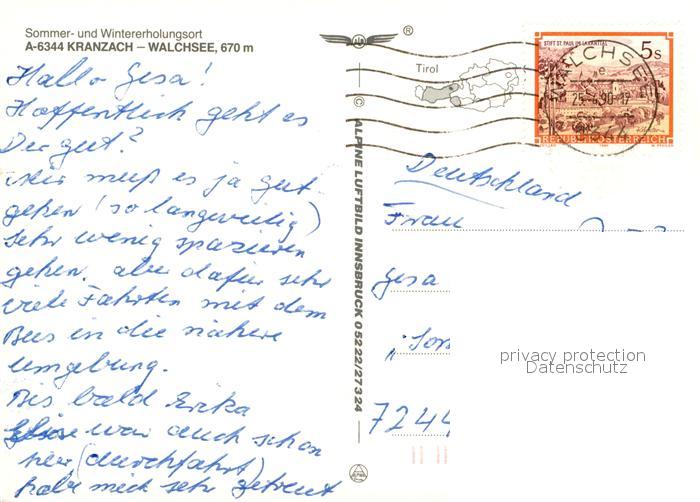 Sommer- und Wintererholungsort
A-6344 KRANZACH – WALCHSEE, 670 m
Hallo Gesa!
Hoffentlich geht es
Dir gut?
Mir muß es ja gut
gehen (so langweilig)
Sehr wenig spazieren
gehen. aber dafür sehr
viele Fahrten mit dem
Bus in die nähere
Umgebung.
Bis bald Erika
war auch schon
hier (durchfahrt)
habe mich sehr gefreut
®
Tirol
© ALPINE LUFTBILD INNSBRUCK 05222/27324
STIFT ST. PAUL IM LAVANTTAL
5s
REPUBLIK ÖSTERREICH
WALCHSEE
Deutschland
Frau
Gesa
"Son
7244
privacy protection
Datenschutz